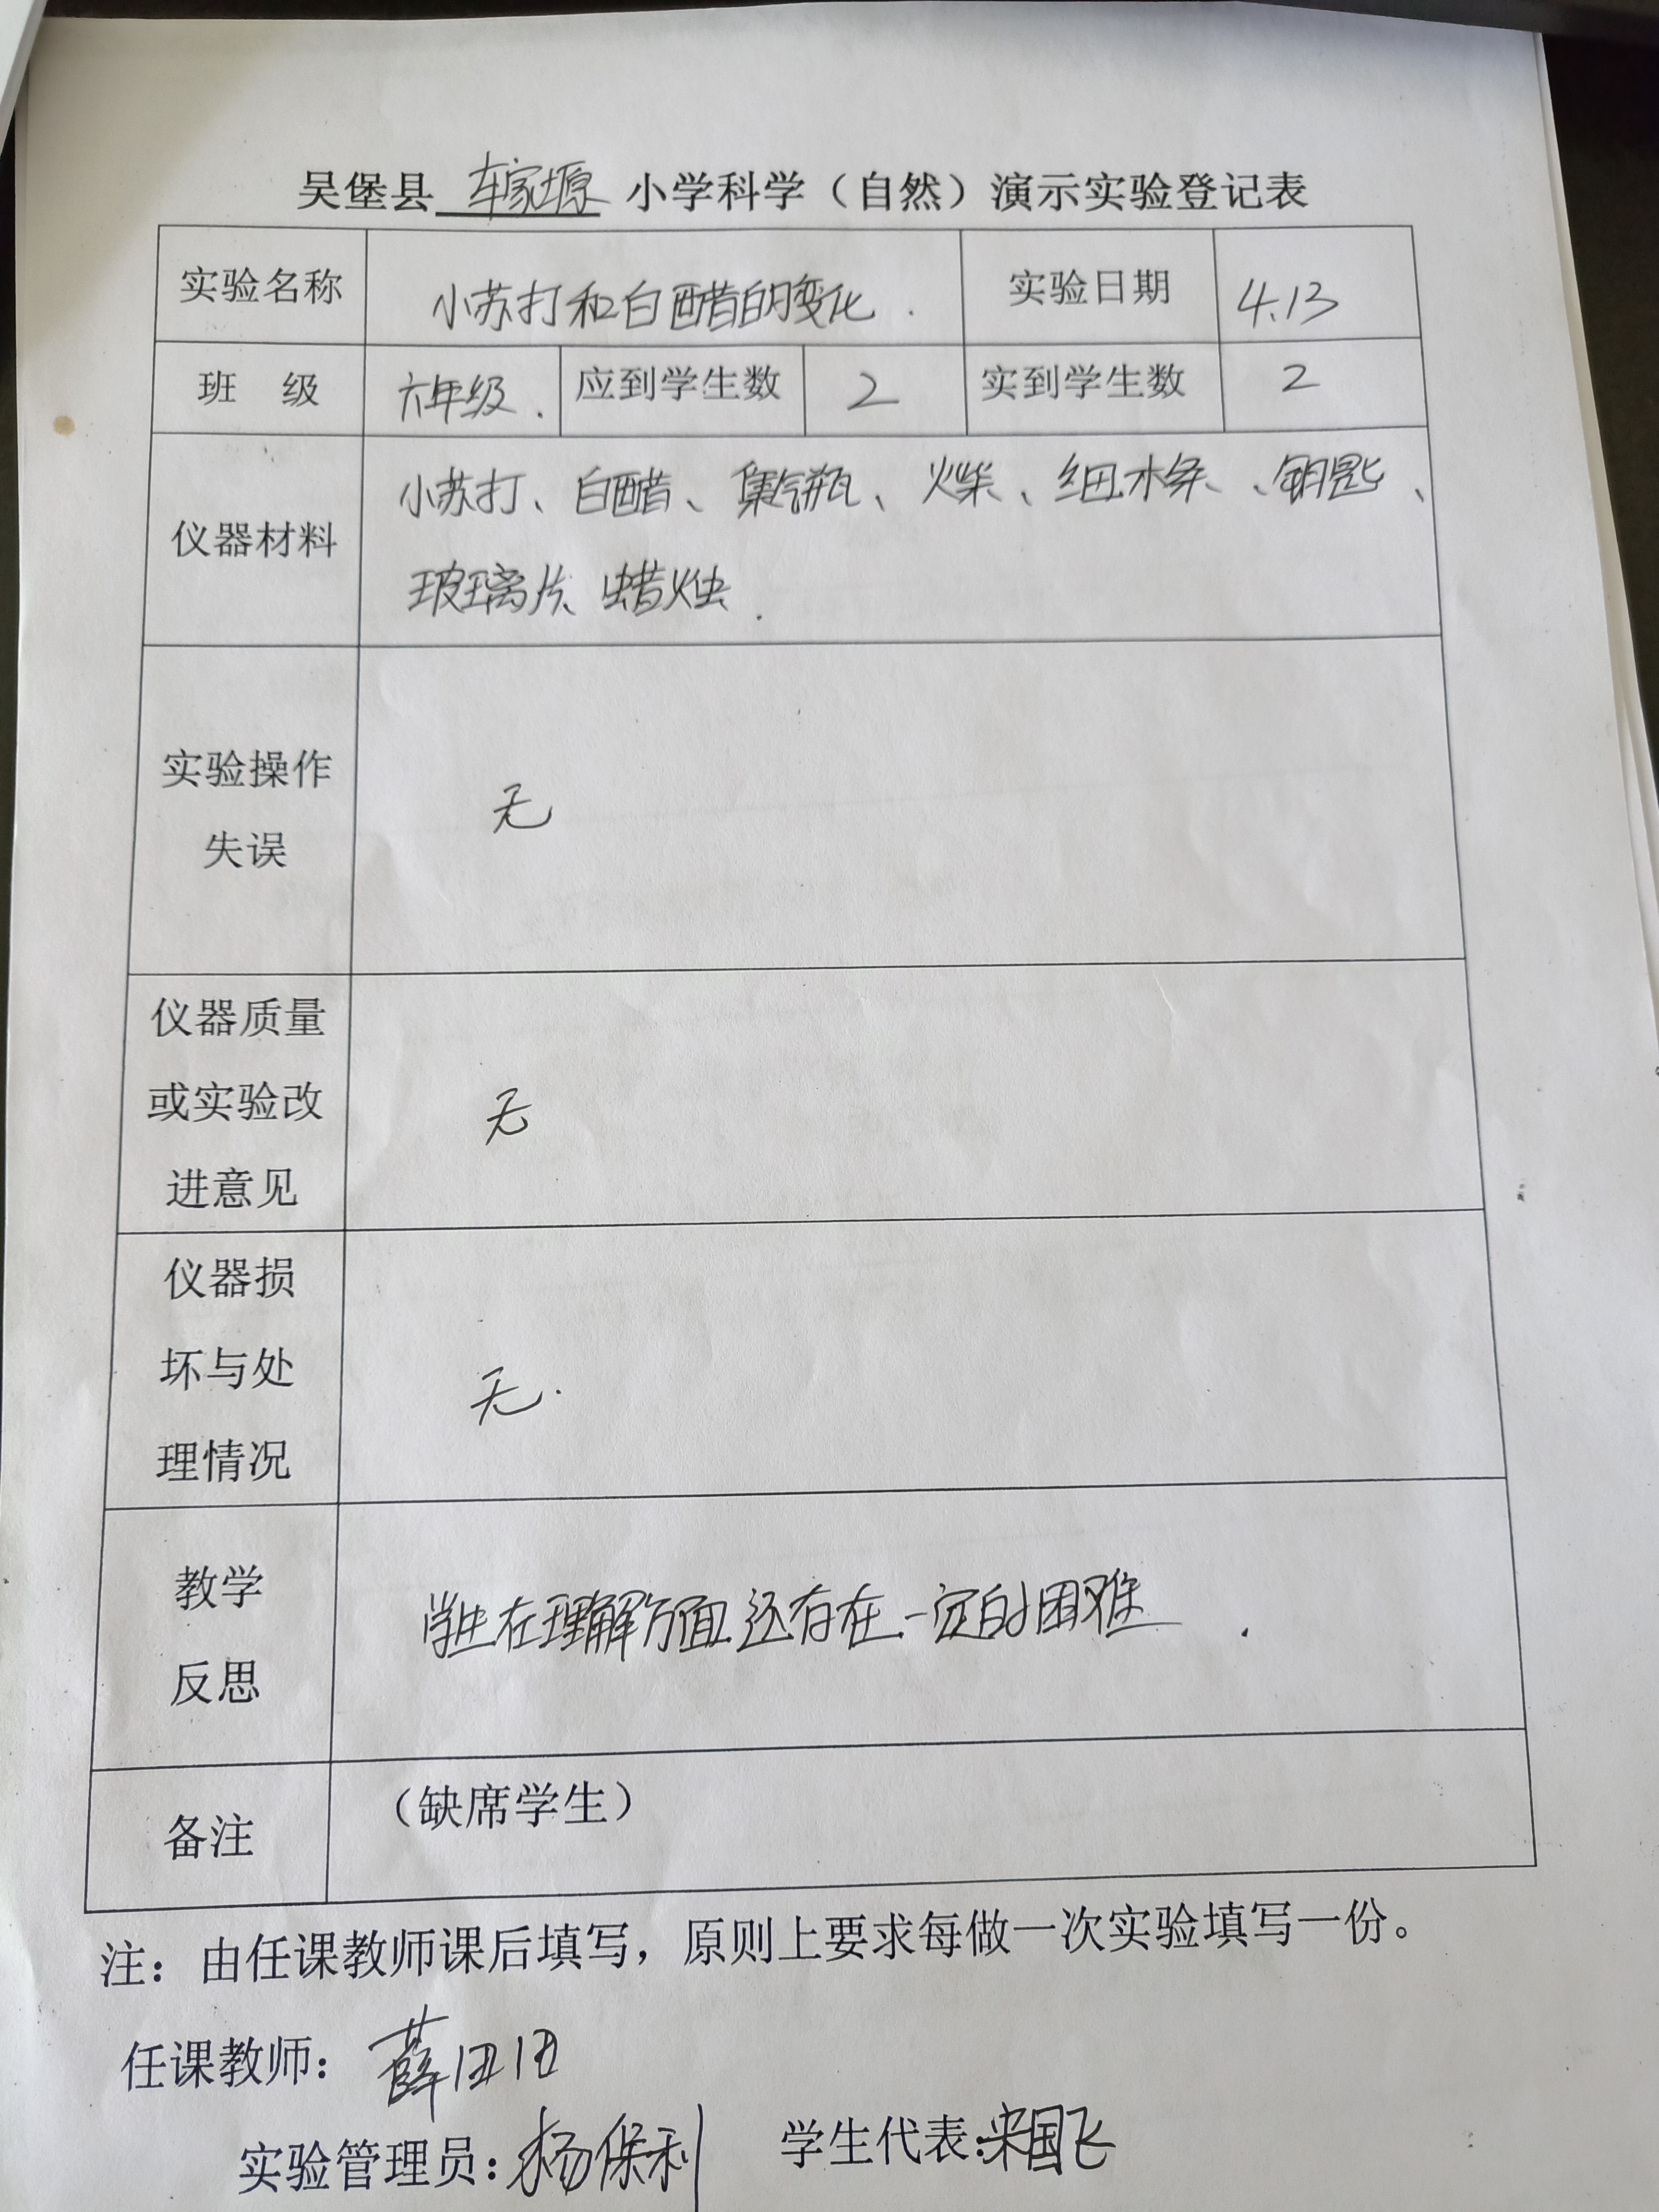 吴堡县 车家塬 小学科学（自然）演示实验登记表
实验名称 小苏打和白醋的变化. 实验日期 4.13
班 级 六年级. 应到学生数 2 实到学生数 2
仪器材料 小苏打、白醋、集气瓶、火柴、细木条、钥匙、
玻璃片、蜡烛.
实验操作
失误
无
仪器质量
或实验改
进意见
无
仪器损
坏与处
理情况
无.
教学
反思
学生在理解方面还存在一定的困难.
备注 （缺席学生）
注：由任课教师课后填写，原则上要求每做一次实验填写一份。
任课教师：薛团团
实验管理员：杨保利 学生代表：宋国飞